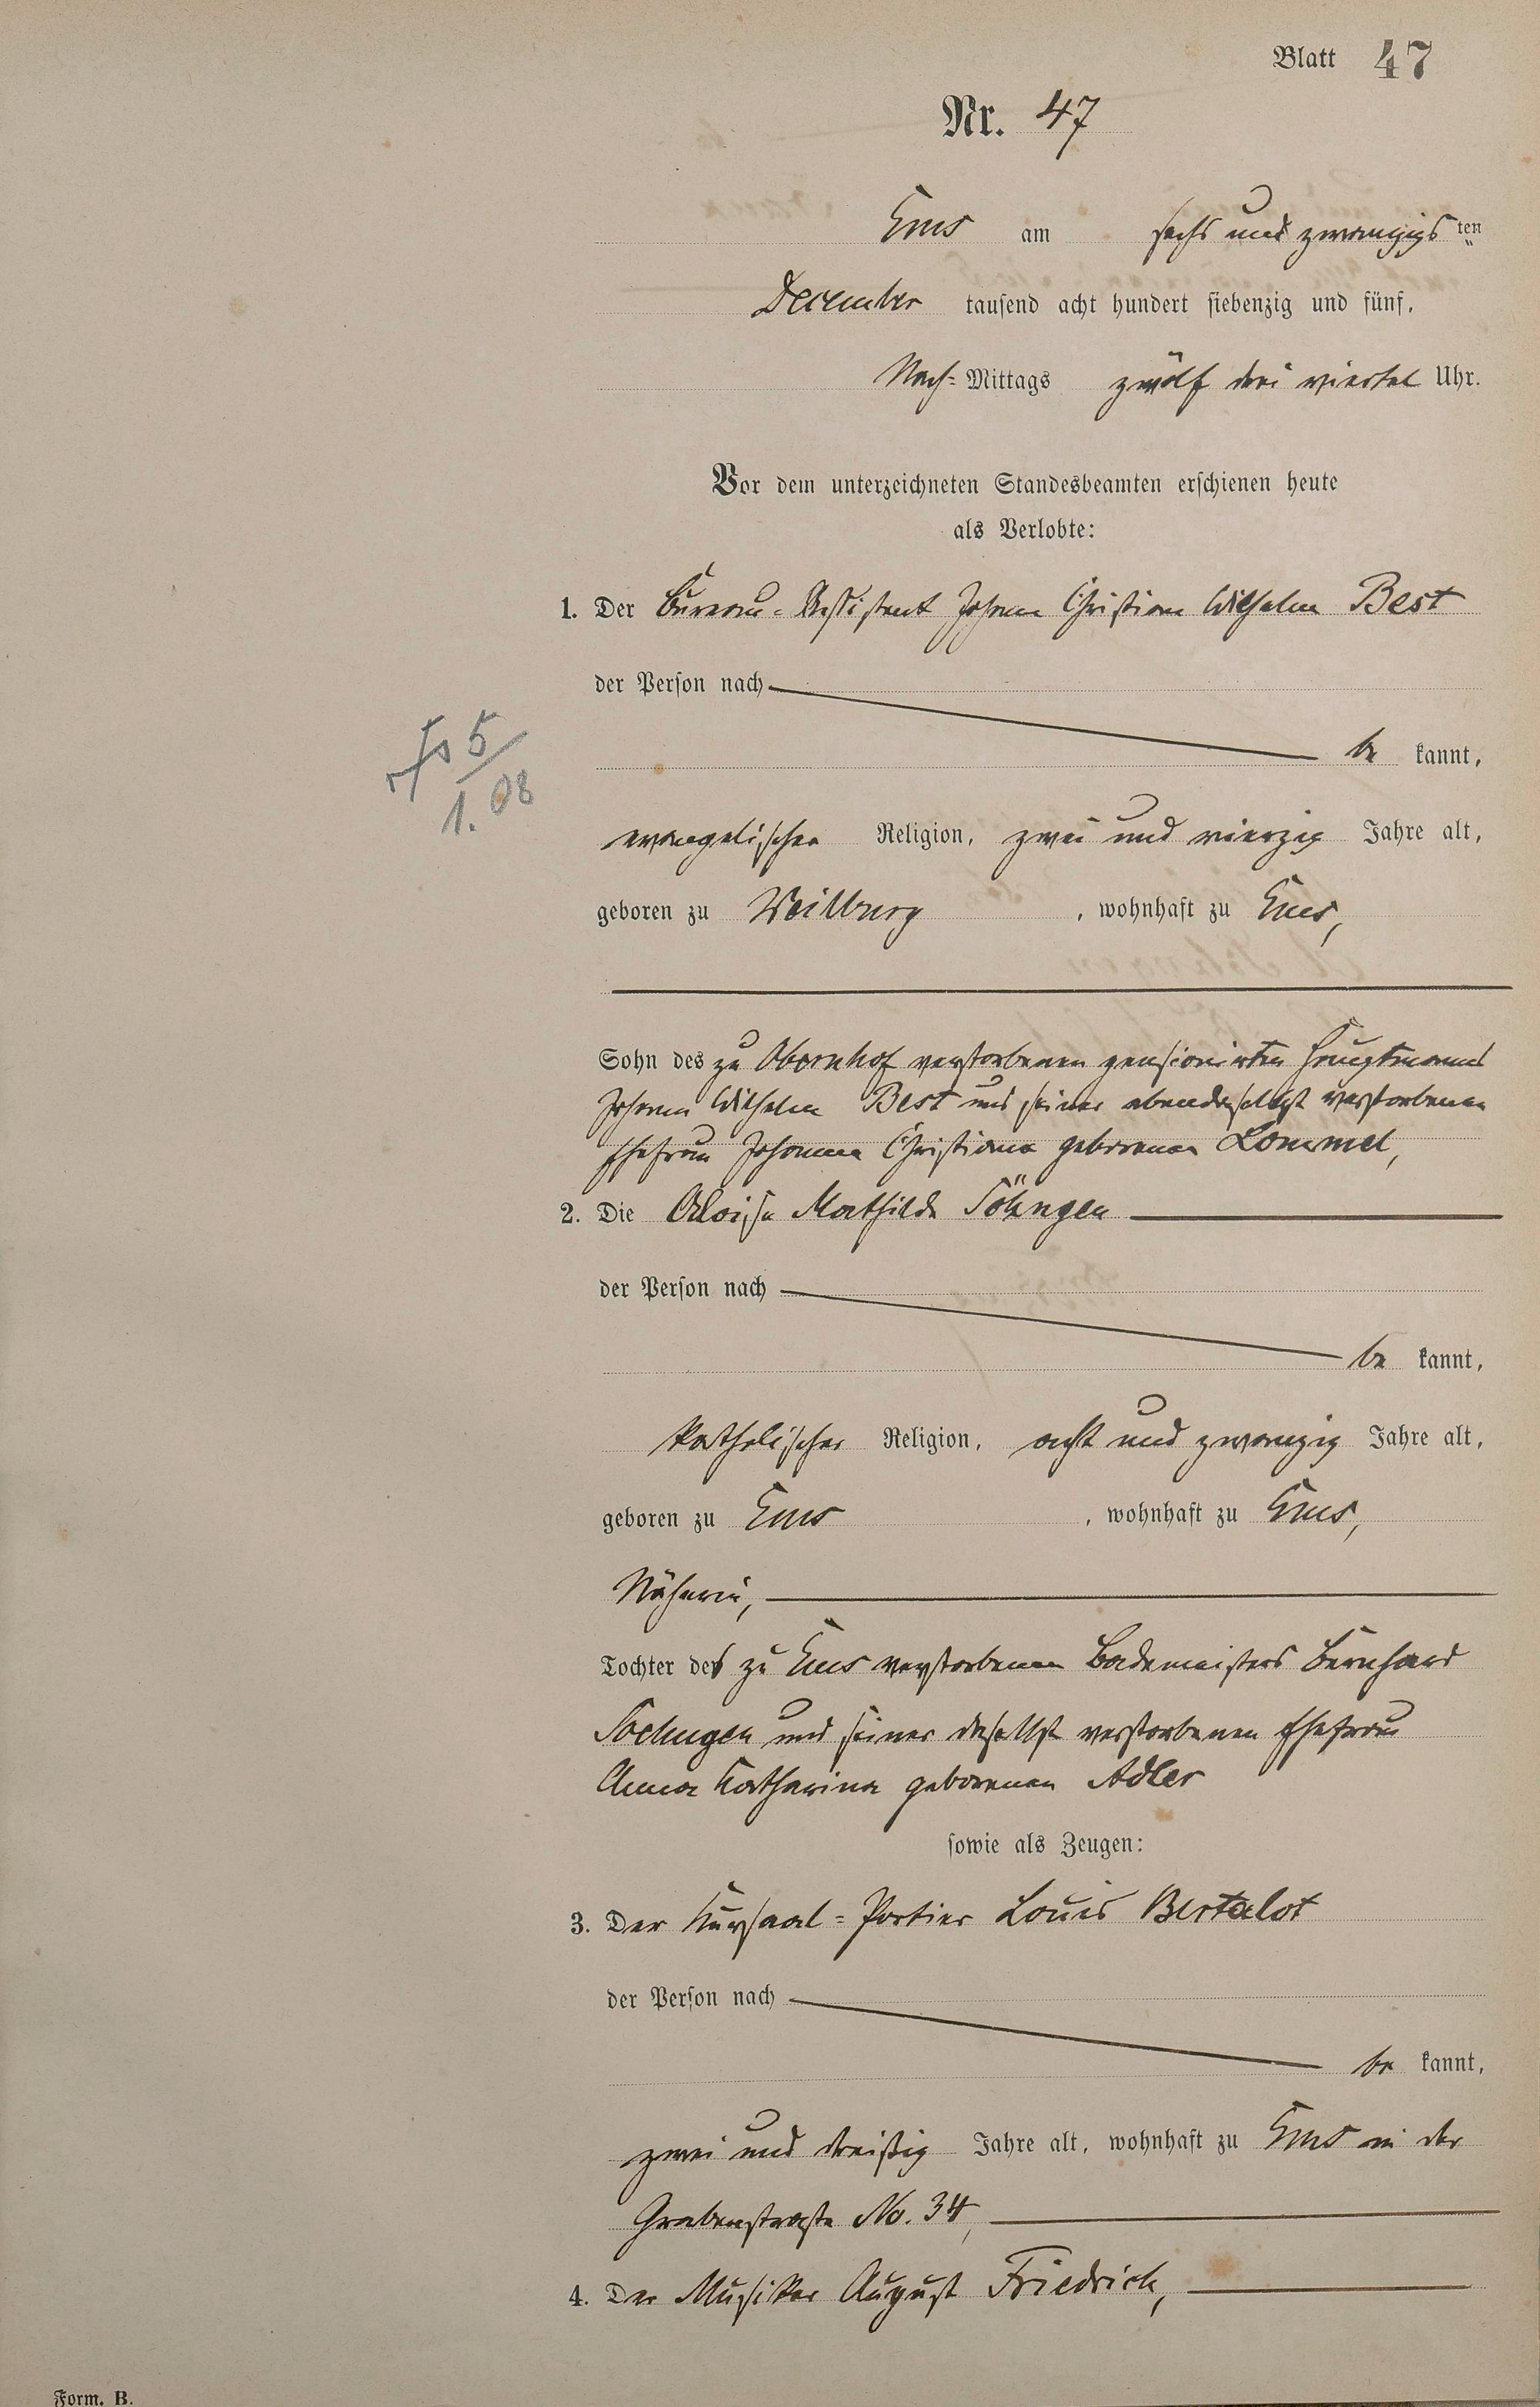 Blatt 47
Nr. 47
Ems am sechs und zwanzigsten
December tausend acht hundert siebenzig und fünf,
Nach-Mittags zwölf drei viertel Uhr.
Vor dem unterzeichneten Standesbeamten erschienen heute
als Verlobte:
1. Der Bureau-Assistent Johann Christian Wilhelm Best
der Person nach
be kannt,
5/1. 08
evangelischer Religion, zwei und vierzig Jahre alt,
geboren zu Weilburg, wohnhaft zu Ems,
Sohn des zu Obernhof verstorbenen pensionirten Hauptmanns
Johann Wilhelm Best und seiner ebendaselbst verstorbenen
Ehefrau Johanna Christiana geborenen Lommel,
2. Die Aloisa Mathilde Söhngen
der Person nach
be kannt,
katholischer Religion, acht und zwanzig Jahre alt,
geboren zu Ems, wohnhaft zu Ems,
Näherin,
Tochter des zu Ems verstorbenen Bademeisters Bernhard
Soehngen und seiner daselbst verstorbenen Ehefrau
Anna Katharina geborenen Adler
sowie als Zeugen:
3. Der Kursaal-Portier Louis Bertalot
der Person nach
be kannt,
zwei und dreißig Jahre alt, wohnhaft zu Ems in der
Grabenstraße No. 34,
4. Der Musiker August Friedrich,
Form. B.